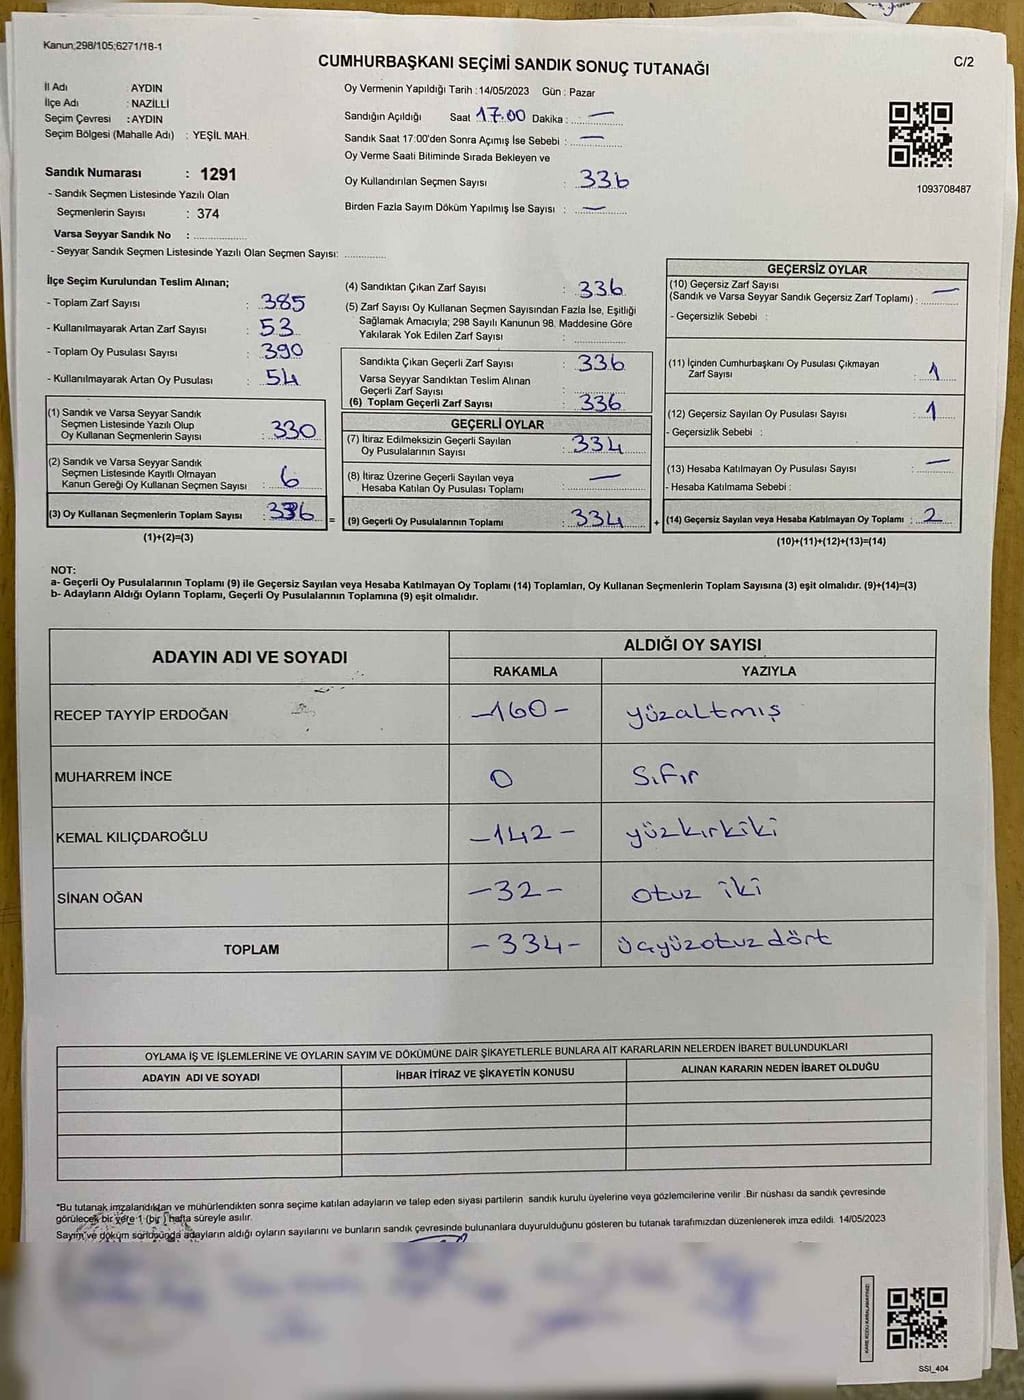 Kanun;298/105;6271/18-1
CUMHURBAŞKANI SEÇİMİ SANDIK SONUÇ TUTANAĞI
C/2
İl Adı : AYDIN
İlçe Adı : NAZİLLİ
Seçim Çevresi : AYDIN
Seçim Bölgesi (Mahalle Adı) : YEŞİL MAH.
Sandık Numarası : 1291
- Sandık Seçmen Listesinde Yazılı Olan
Seçmenlerin Sayısı : 374
Varsa Seyyar Sandık No : ..................
- Seyyar Sandık Seçmen Listesinde Yazılı Olan Seçmen Sayısı: .............
Oy Vermenin Yapıldığı Tarih : 14/05/2023 Gün : Pazar
Sandığın Açıldığı Saat 17.00 Dakika : —
Sandık Saat 17:00'den Sonra Açımış İse Sebebi : —
Oy Verme Saati Bitiminde Sırada Bekleyen ve
Oy Kullandırılan Seçmen Sayısı : 336
Birden Fazla Sayım Döküm Yapılmış İse Sayısı : —
1093708487
İlçe Seçim Kurulundan Teslim Alınan;
- Toplam Zarf Sayısı : 385
- Kullanılmayarak Artan Zarf Sayısı : 53
- Toplam Oy Pusulası Sayısı : 390
- Kullanılmayarak Artan Oy Pusulası : 54
(1) Sandık ve Varsa Seyyar Sandık
Seçmen Listesinde Yazılı Olup
Oy Kullanan Seçmenlerin Sayısı : 330
(2) Sandık ve Varsa Seyyar Sandık
Seçmen Listesinde Kayıtlı Olmayan
Kanun Gereği Oy Kullanan Seçmen Sayısı : 6
(3) Oy Kullanan Seçmenlerin Toplam Sayısı : 336 =
(1)+(2)=(3)
(4) Sandıktan Çıkan Zarf Sayısı : 336
(5) Zarf Sayısı Oy Kullanan Seçmen Sayısından Fazla İse, Eşitliği
Sağlamak Amacıyla; 298 Sayılı Kanunun 98. Maddesine Göre
Yakılarak Yok Edilen Zarf Sayısı :
Sandıkta Çıkan Geçerli Zarf Sayısı : 336
Varsa Seyyar Sandıktan Teslim Alınan
Geçerli Zarf Sayısı :
(6) Toplam Geçerli Zarf Sayısı : 336
GEÇERLİ OYLAR
(7) İtiraz Edilmeksizin Geçerli Sayılan
Oy Pusulalarının Sayısı : 334
(8) İtiraz Üzerine Geçerli Sayılan veya
Hesaba Katılan Oy Pusulası Toplamı : —
(9) Geçerli Oy Pusulalarının Toplamı : 334 +
GEÇERSİZ OYLAR
(10) Geçersiz Zarf Sayısı
(Sandık ve Varsa Seyyar Sandık Geçersiz Zarf Toplamı) : —
- Geçersizlik Sebebi :
(11) İçinden Cumhurbaşkanı Oy Pusulası Çıkmayan
Zarf Sayısı : 1
(12) Geçersiz Sayılan Oy Pusulası Sayısı : 1
- Geçersizlik Sebebi :
(13) Hesaba Katılmayan Oy Pusulası Sayısı : —
- Hesaba Katılmama Sebebi :
(14) Geçersiz Sayılan veya Hesaba Katılmayan Oy Toplamı : 2
(10)+(11)+(12)+(13)=(14)
NOT:
a- Geçerli Oy Pusulalarının Toplamı (9) ile Geçersiz Sayılan veya Hesaba Katılmayan Oy Toplamı (14) Toplamları, Oy Kullanan Seçmenlerin Toplam Sayısına (3) eşit olmalıdır. (9)+(14)=(3)
b- Adayların Aldığı Oyların Toplamı, Geçerli Oy Pusulalarının Toplamına (9) eşit olmalıdır.
ADAYIN ADI VE SOYADI
ALDIĞI OY SAYISI
RAKAMLA YAZIYLA
RECEP TAYYİP ERDOĞAN -160- yüzaltmış
MUHARREM İNCE 0 Sıfır
KEMAL KILIÇDAROĞLU -142- yüzkırkiki
SİNAN OĞAN -32- otuz iki
TOPLAM -334- üçyüzotuzdört
OYLAMA İŞ VE İŞLEMLERİNE VE OYLARIN SAYIM VE DÖKÜMÜNE DAİR ŞİKAYETLERLE BUNLARA AİT KARARLARIN NELERDEN İBARET BULUNDUKLARI
ADAYIN ADI VE SOYADI İHBAR İTİRAZ VE ŞİKAYETİN KONUSU ALINAN KARARIN NEDEN İBARET OLDUĞU
*Bu tutanak imzalandıktan ve mühürlendikten sonra seçime katılan adayların ve talep eden siyasi partilerin sandık kurulu üyelerine veya gözlemcilerine verilir .Bir nüshası da sandık çevresinde
görülecek bir yere 1 (bir ) hafta süreyle asılır.
Sayım ve döküm sonucunda adayların aldığı oyların sayılarını ve bunların sandık çevresinde bulunanlara duyurulduğunu gösteren bu tutanak tarafımızdan düzenlenerek imza edildi. 14/05/2023
SSI_404